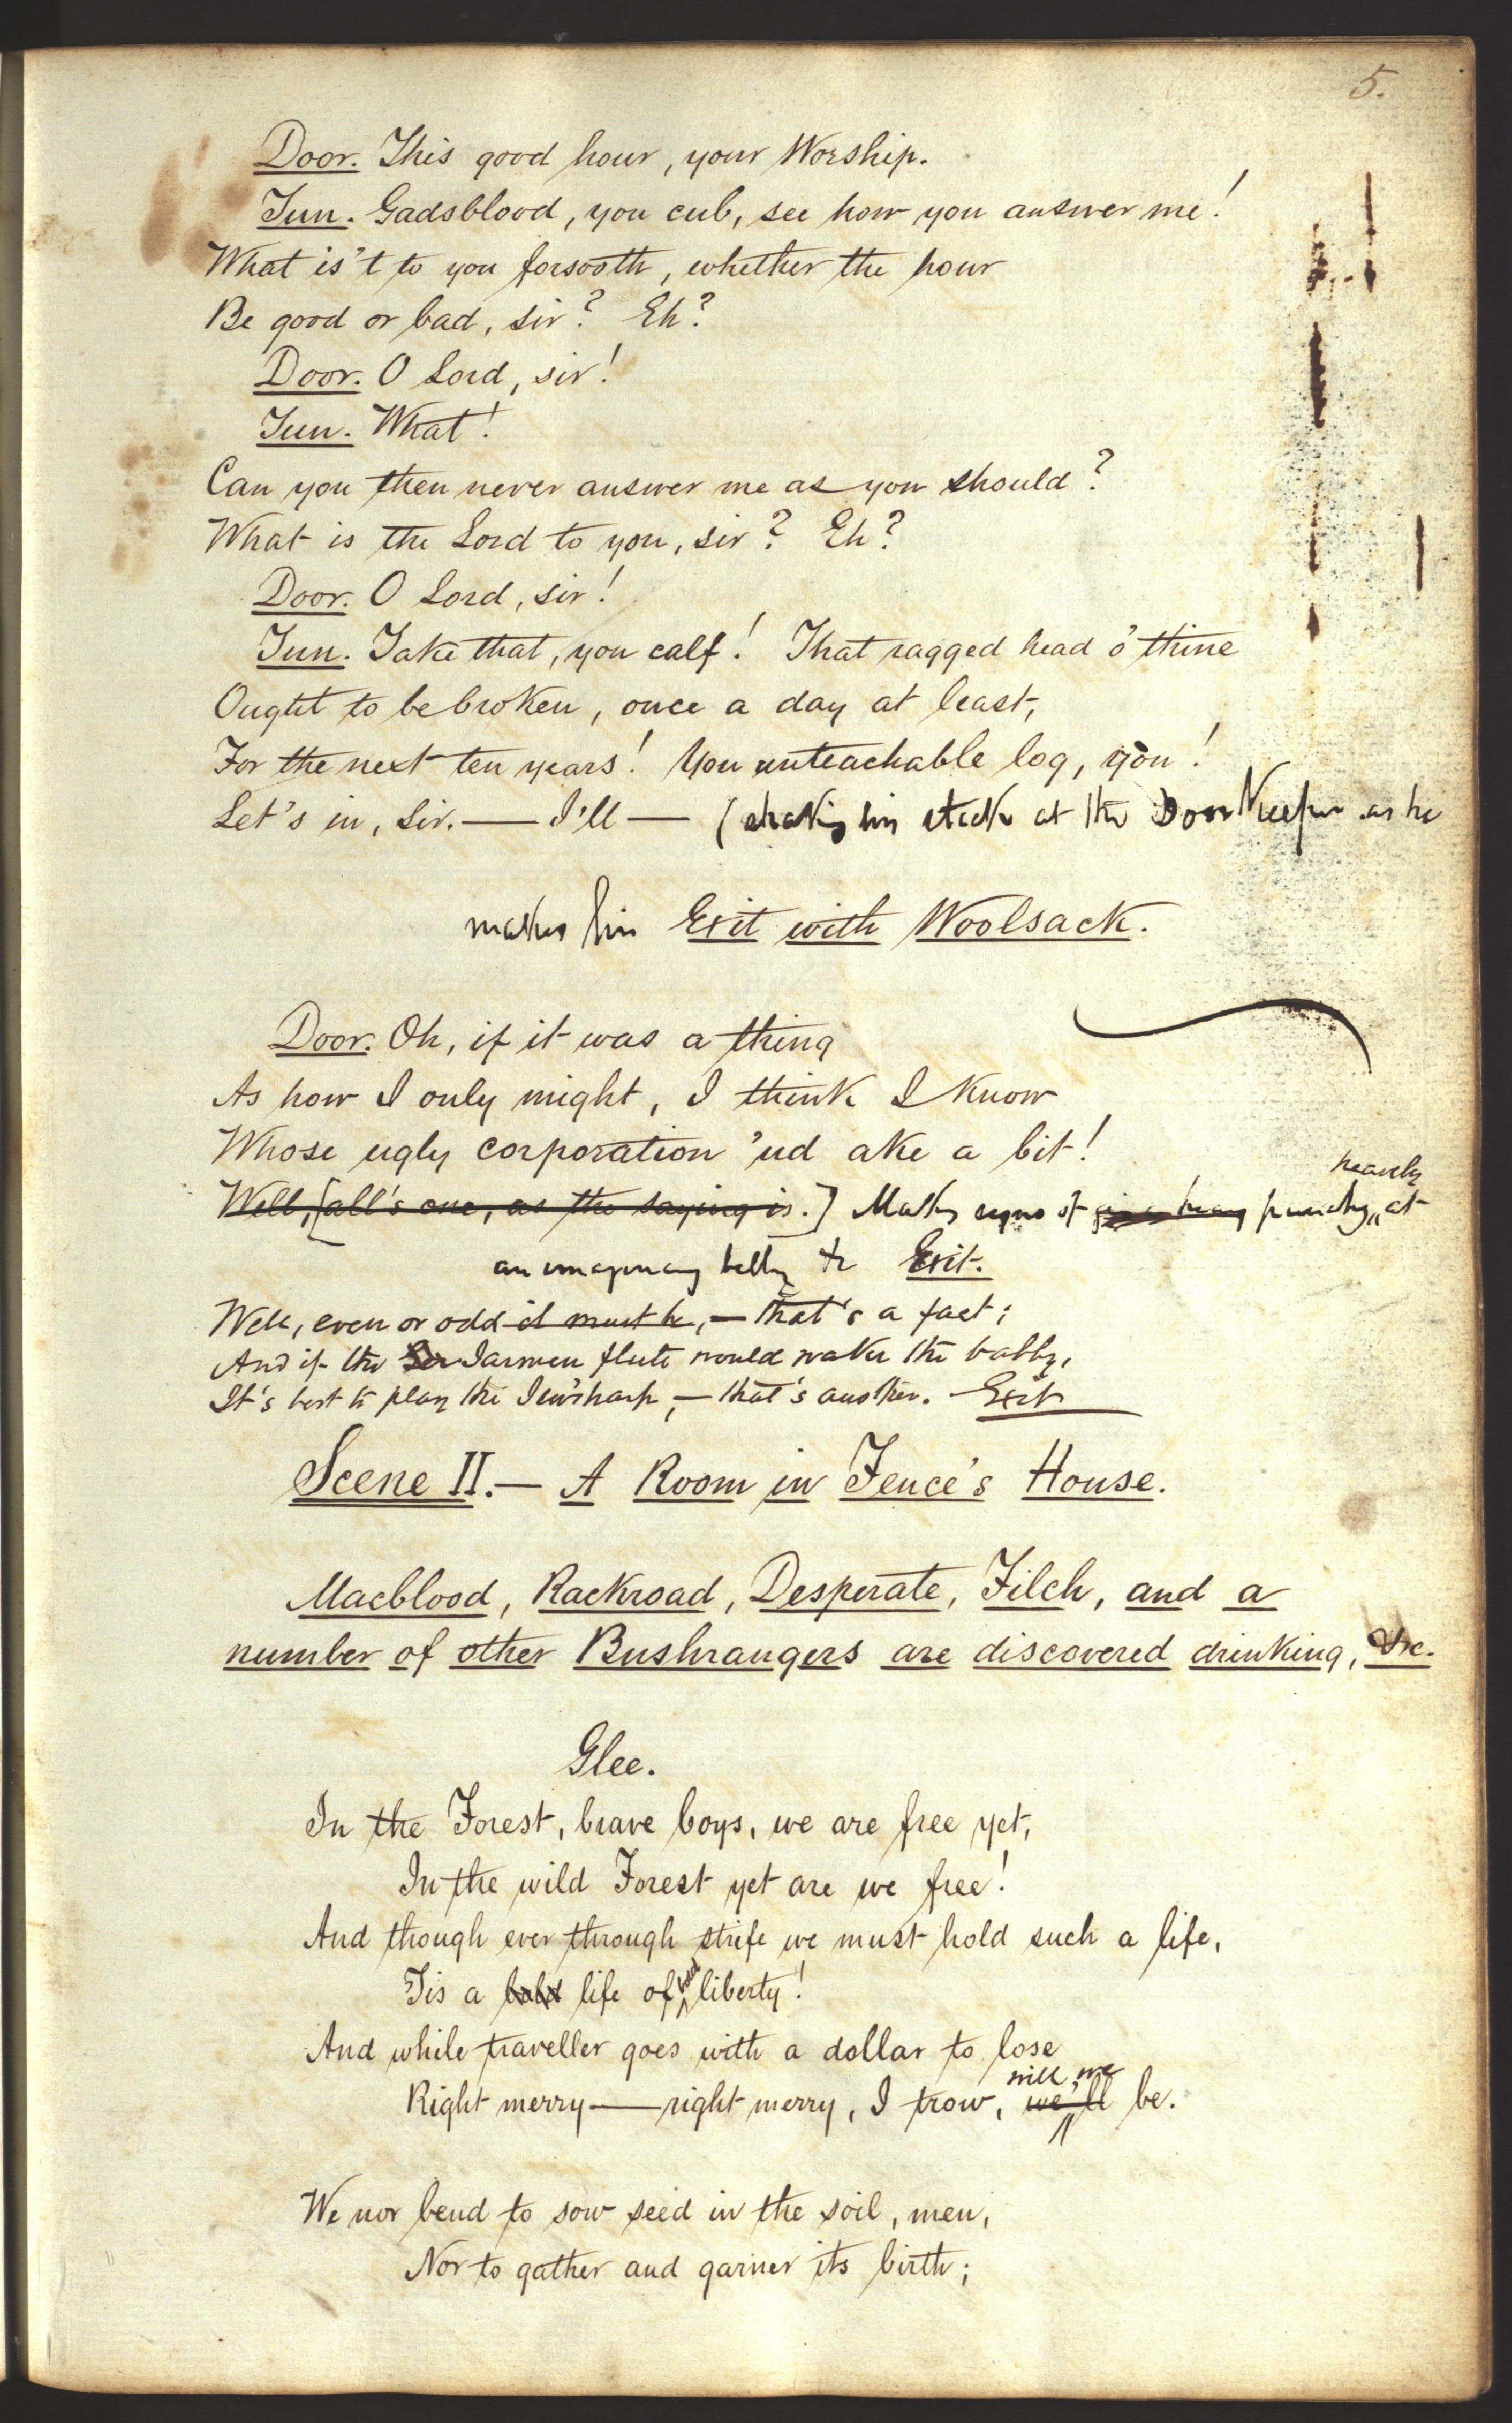 5.
Door. This good hour, your Worship.
Jun. Gadsblood, you cub, see how you answer me!
What is't to you forsooth, whether the hour
Be good or bad, sir? Eh?
Door. O Lord, sir!
Jun. What!
Can you then never answer me as you should?
What is the Lord to you, sir? Eh?
Door. O Lord, sir!
Jun. Take that, you calf! That ragged head o' thine
Ought to be broken, once a day at least,
For the next ten years! You unteachable log, you!
Let's in, sir. — I'll — (shaking his stick at the Door Keeper as he
makes his Exit with Woolsack.
Door. Oh, if it was a thing
As how I only might, I think I know
Whose ugly corporation 'ud ake a bit!
heavily
Well, [all's one, as the saying is.] Makes signs of punching at
an imaginary belly & Exit.
Well, even or odd it must be, — that's a fact;
And if the Jarmen flute would wake the babby,
It's best to play the Jew'sharp, — that's another. Exit
Scene II. — A Room in Fence's House.
Macblood, Rackroad, Desperate, Filch, and a
number of other Bushrangers are discovered drinking, &c.
Glee.
In the Forest, brave boys, we are free yet,
In the wild Forest yet are we free!
And though ever through strife we must hold such a life,
Tis a bold life of wild liberty!
And while traveller goes with a dollar to lose
will we
Right merry — right merry, I trow, we'll be.
We nor bend to sow seed in the soil, men,
Nor to gather and garner its birth;